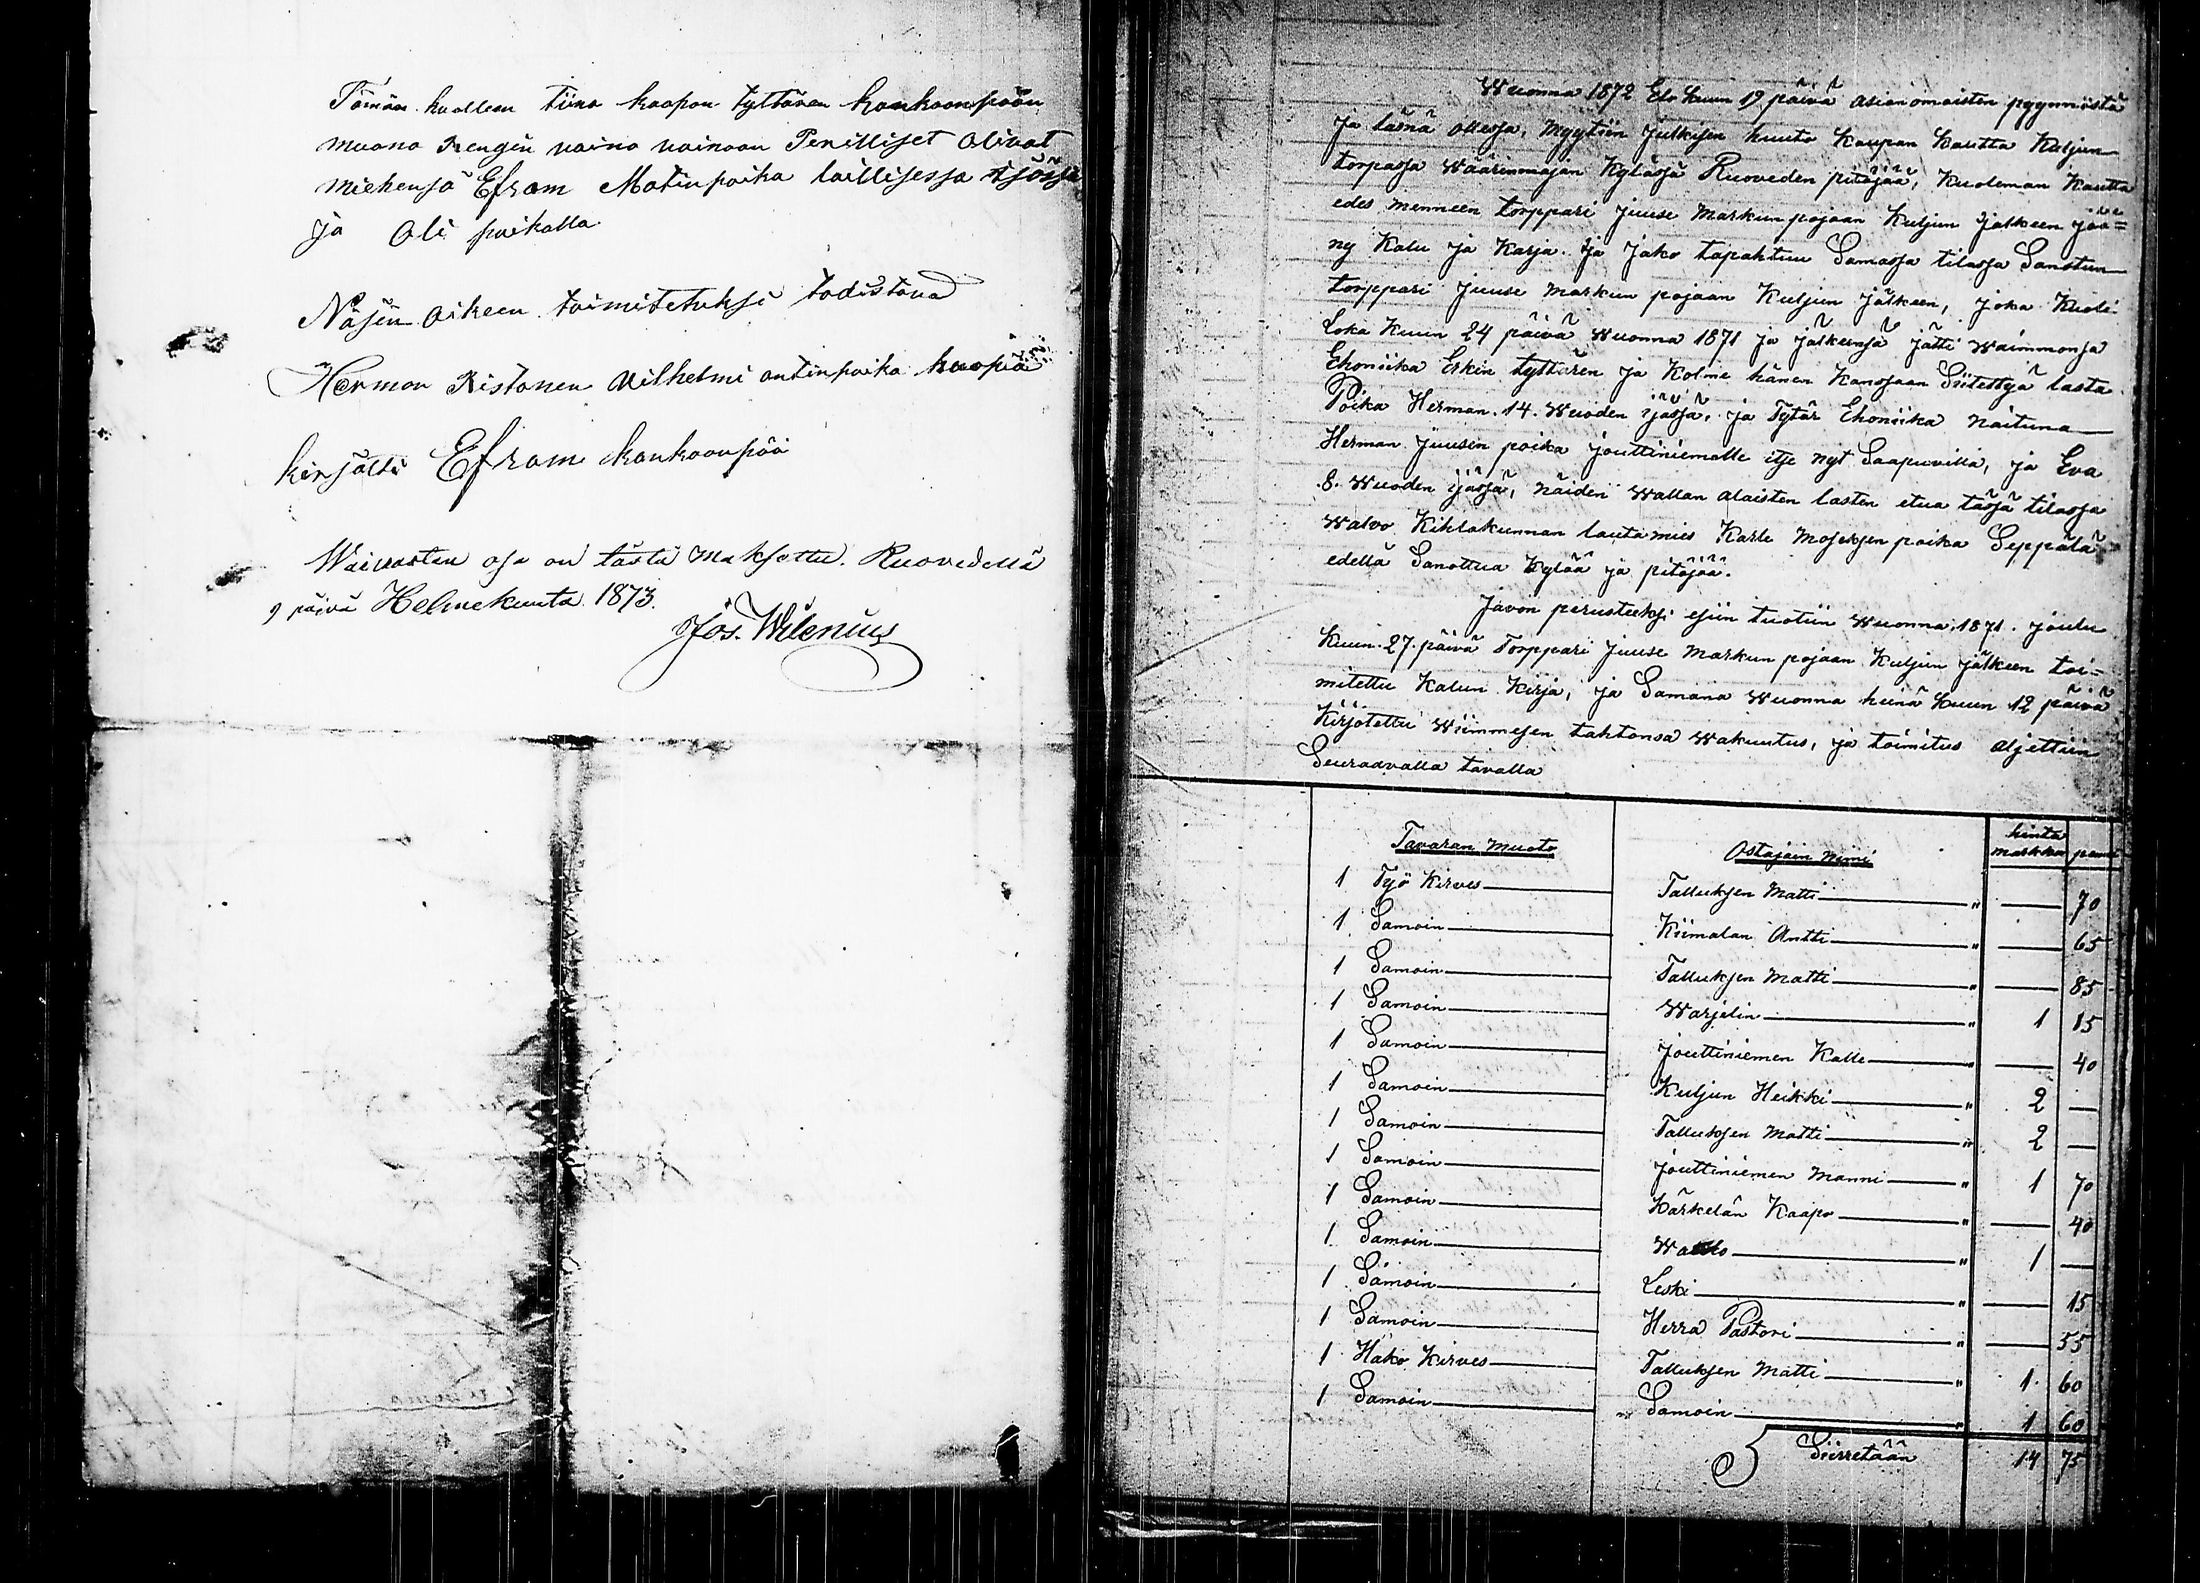 Tämän kuolleen tiina kaapon tyttären kankaanpään
muona Rengin vaimo vainaan Perilliset olivat
miehensä Efram Matinpoika laillisessa
ja oli paikalla
Näsin oikeen toimitetuksi todistava
Herman Ristanen Vilhelmi antinpoika
kirjotti Efram kankaanpää
Waivasten osa on tästä maksettu. Ruovedellä
9 päivä Helmekuuta 1873.
Jos. Wilenius
Wuonna 1872 Elo kuun 19 päivä asian omaisten pyynnöstä
Ja läsnä ollessa, myytiin julkisen huuto kaupan kautta Kuljun
torpassa Wäärinmajan Kylässä Ruoveden pitäjää, kuoleman kautta
edes menneen torppari Juuse Markun pojaan Kuljun jälkeen jää=
ny Kalu ja Karja. Ja Jako tapahtuu Samassa tilassa Sanotun
torppari Juuse Markun pojaan Kuljun jälkeen, joka kuoli
Loka Kuun 24 päivä Wuonna 1871 ja jälkensä jätti Waimmonsa
Ekoniika Erkin tyttären ja Kolme hänen kanssaan Siitettyä lasta
Poika Herman. 14. Wuoden ijässä, ja Tytär Ekoniika naituna
Herman Juusen poika Jouttiniemelle itse nyt Saapuvilla, ja Eva
.8. Wuoden ijässä, näiden Wallan alaisten lasten etua tässä tilassa
Walvo Kihlakunnan lautamies Karle Moseksen poika Seppälä
edellä Sanottua Kylää ja pitäjää.
Javon perusteeksi esiin tuotiin Wuonna, 1871. joulu
Kuun. 27. päivä Torppari Juuse Markun pojaan Kuljun jälkeen toi=
mitettu Kalun Kirja, ja Samana Wuonna heinä Kuun 12 päivä
Kirjotettu Wiimmesen tahtonsa Wakuutus, ja toimitus aljettiin
Seuraavalla tavalla
Tavaran muoto Ostajain nimi hinta
markkaa penni
1 Työ Kirves Talluksen Matti " — 70
1 Samoin Kiimalan Antti " — 65
1 Samoin Talluksen Matti " — 85
1 Samoin Warjelin " 1 15
1 Samoin Jouttiniemen Kalle " — 40
1 Samoin Kuljun Heikki " 2 —
1 Samoin Talluksen Matti " 2 —
1 Samoin Jouttiniemen Manni " 1 70
1 Samoin Kärkelän Kaapo " — 40
1 Samoin " 1 —
1 Samoin Leski " — 15
1 Samoin Herra Pastori " — 55
1 Hako Kirves Talluksen Matti " 1 60
1 Samoin Samoin " 1 60
Siirretään 14 75